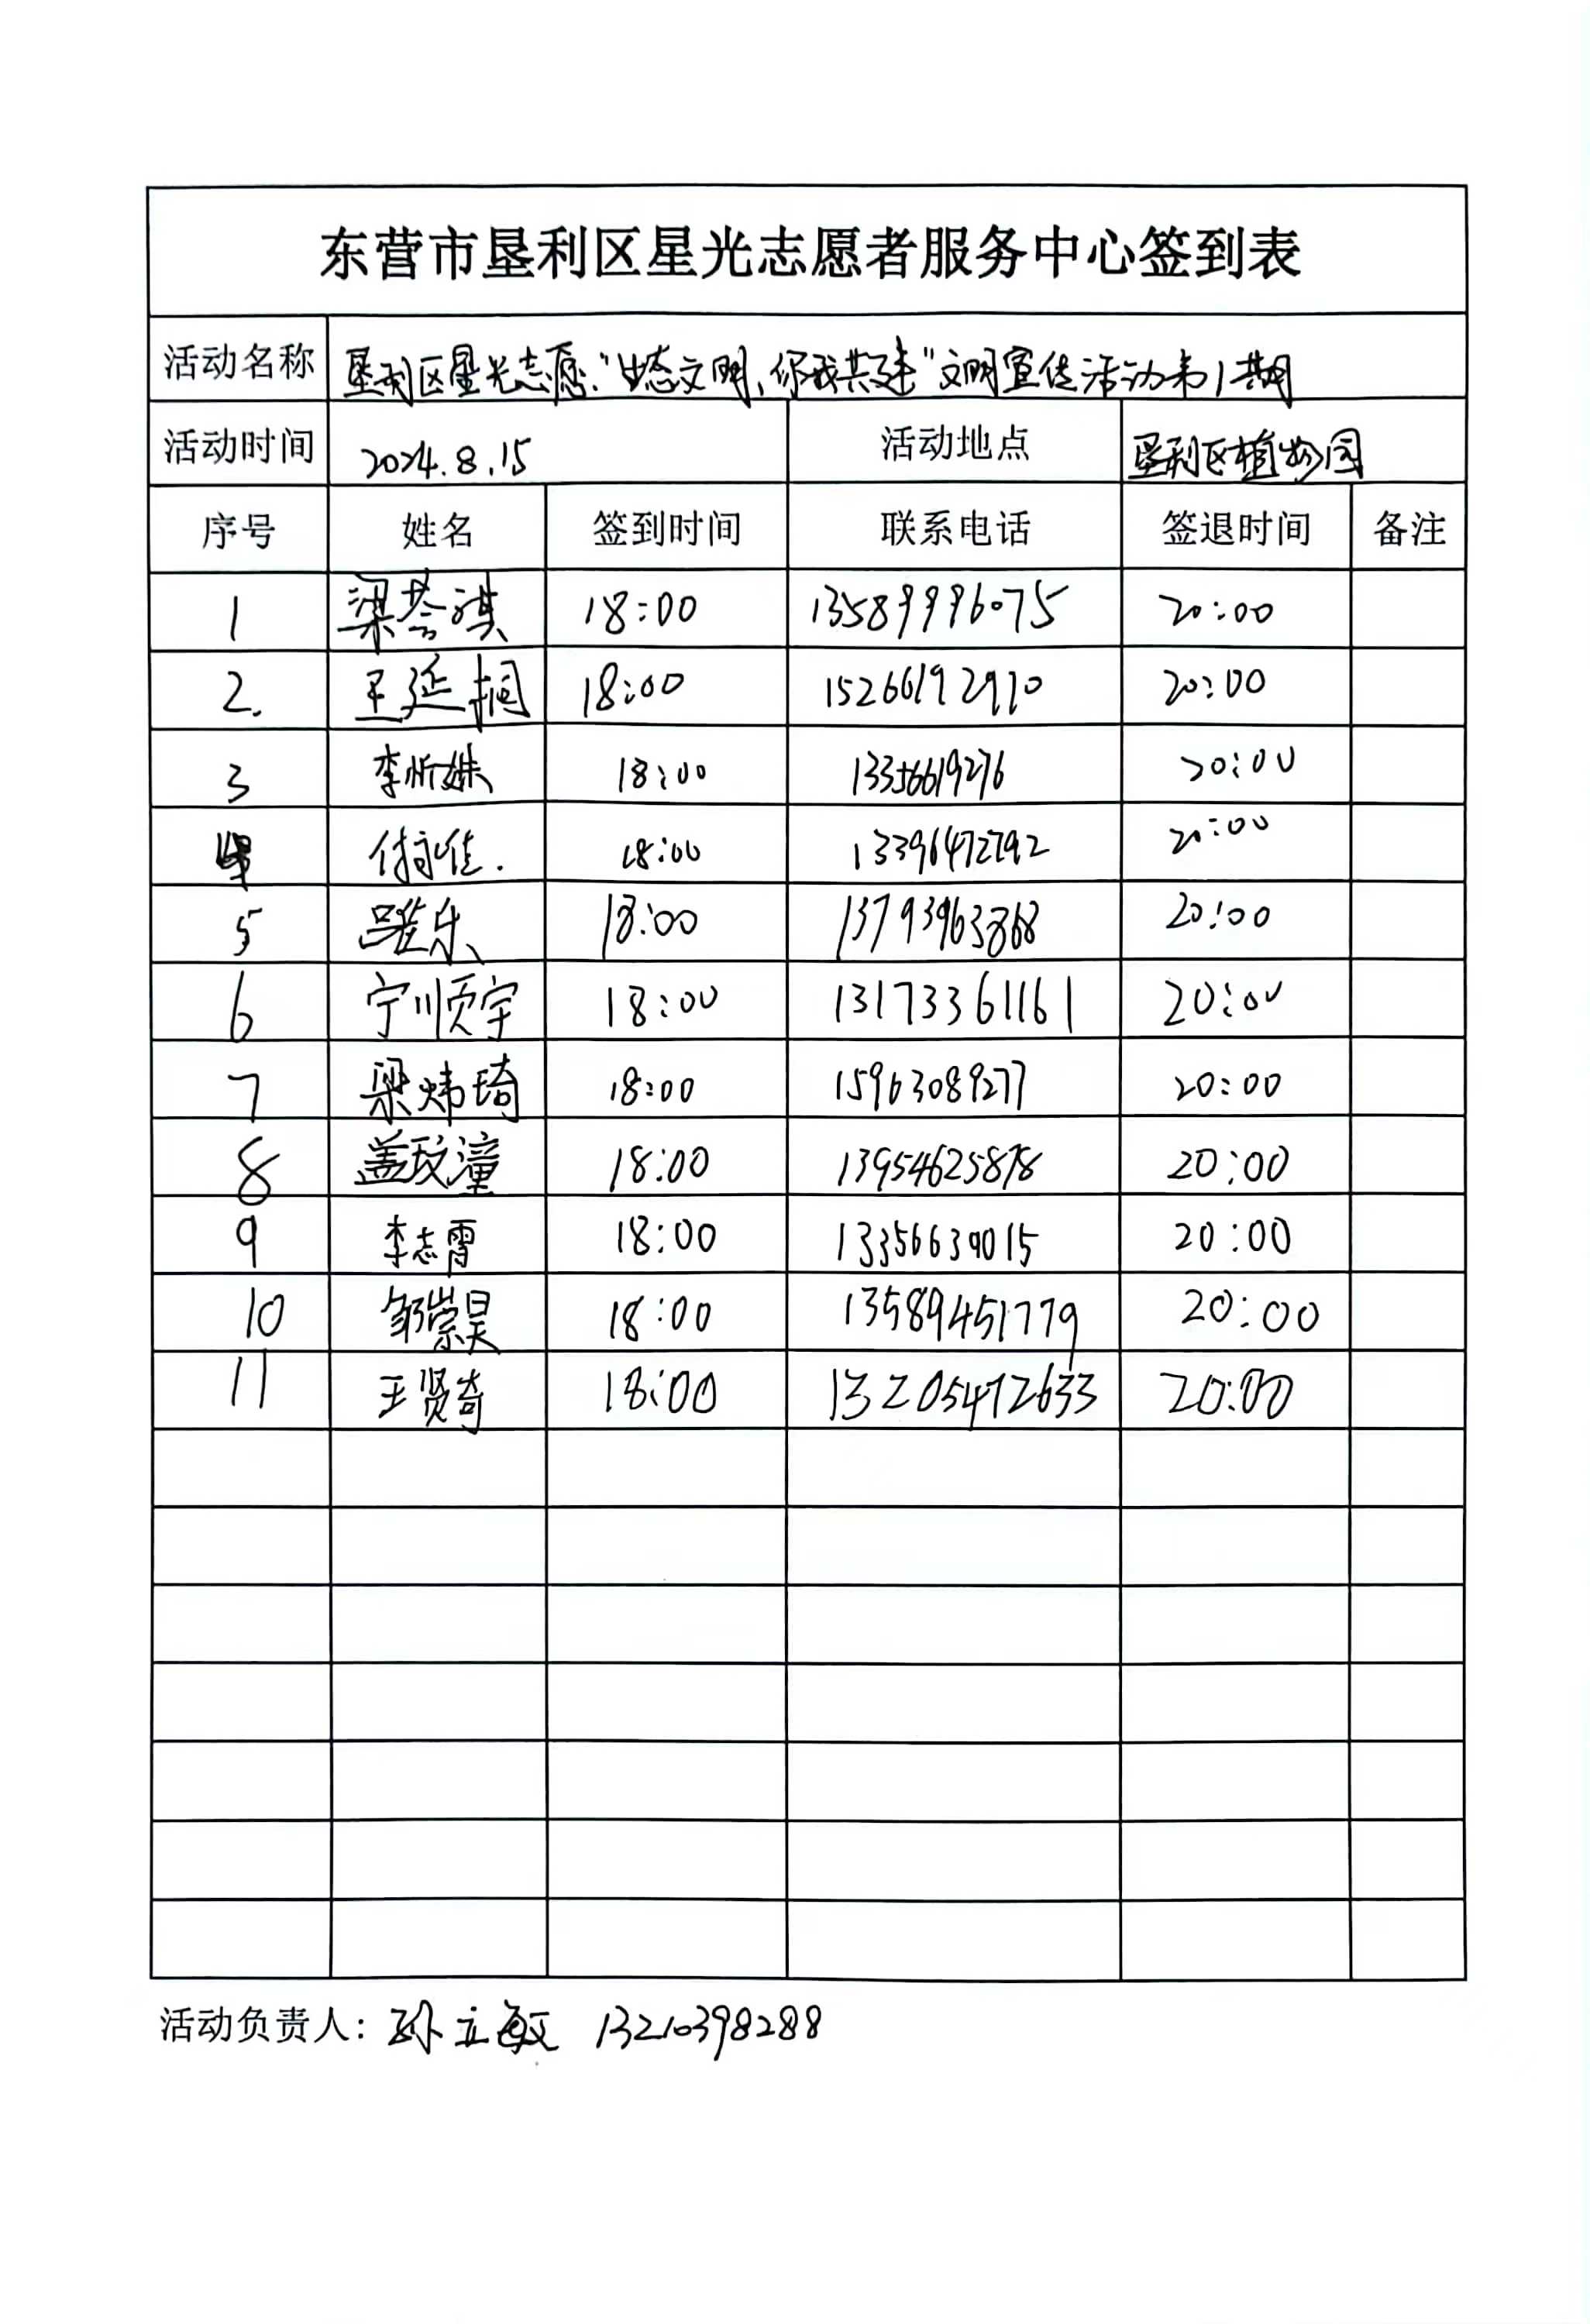 东营市垦利区星光志愿者服务中心签到表
活动名称 垦利区星光志愿"生态文明,你我共建"文明宣传活动第1期
活动时间 2024.8.15 活动地点 垦利区植物园
序号 姓名 签到时间 联系电话 签退时间 备注
1 梁荟祺 18:00 13589996075 20:00
2. 王延桐 18:00 15266192910 20:00
3 李忻姝 18:00 13356619276 20:00
18:00 13396472792 20:00
5 18:00 13793963868 20:00
6 宁顺宇 18:00 13173361161 20:00
7 梁炜琦 18:00 15963089277 20:00
8 盖玟潼 18:00 13954625878 20:00
9 李志霄 18:00 13356639015 20:00
10 邹崇昊 18:00 13589451779 20:00
11 王贤奇 18:00 13205472633 20:00
活动负责人: 孙立敏 13210398288